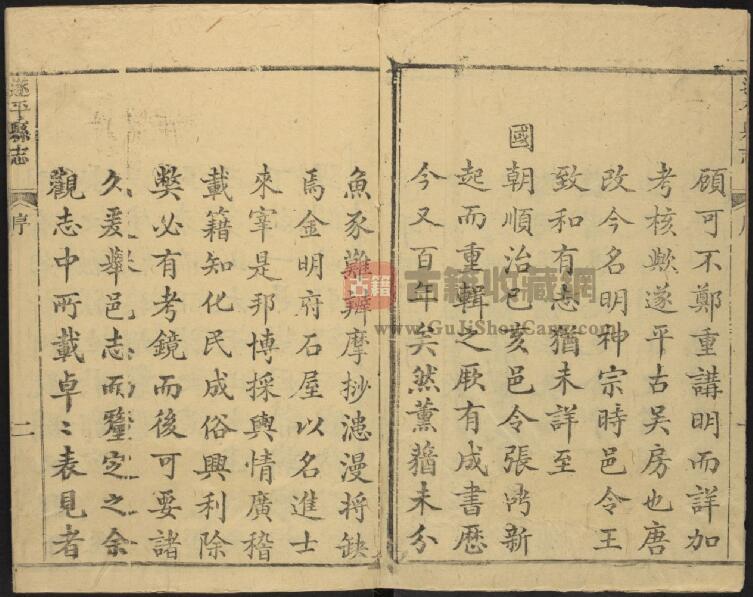 顧可不鄭重講明而詳加
考核歟遂平古吳房也唐
改今名明神宗時邑令王
致和有志猶未詳至
國朝順治己亥邑令張鼎新
起而重輯之厥有成書歷
今又百年矣然薰蕕未分
遂平縣志
序
二
魚豕難辨摩抄漶漫將缺
焉金明府石屋以名進士
來宰是邦博採輿情廣稽
載籍知化民成俗興利除
獘必有考鏡而後可要諸
久爰舉邑志而釐定之余
觀志中所載卓〻表見者
古籍
古籍收藏網
www.GuJiShouCang.com